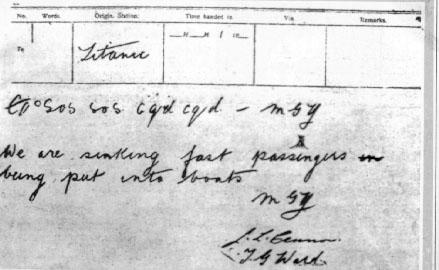 No. Words. Origin. Station. Time handed in. Via. Remarks.
To Titanic —H—M / 19
sos sos cqd cqd - MGY
We are sinking fast passengers
being put into boats
MGY